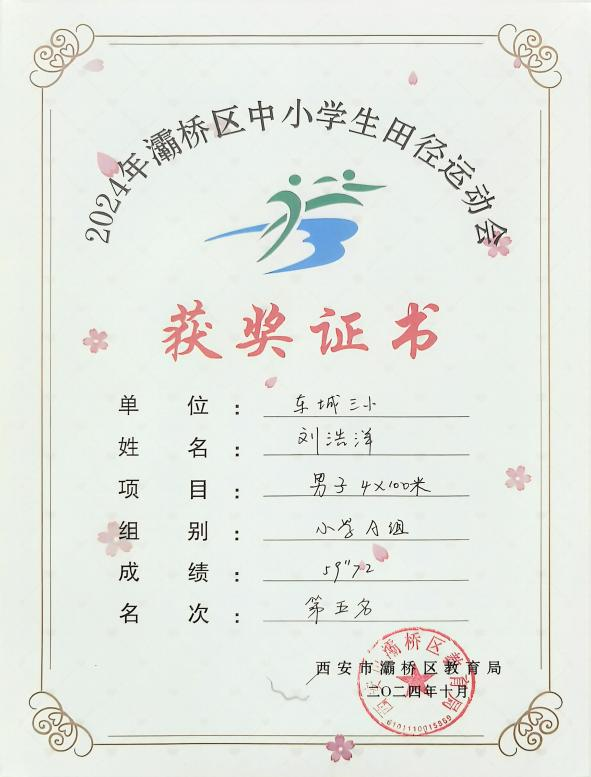 2024年灞桥区中小学生田径运动会
获奖证书
单位：东城三小
姓名：刘浩洋
项目：男子 4×100米
组别：小学A组
成绩：59"72
名次：第五名
西安市灞桥区教育局
二〇二四年十月
西安市灞桥区教育局
6101110015869